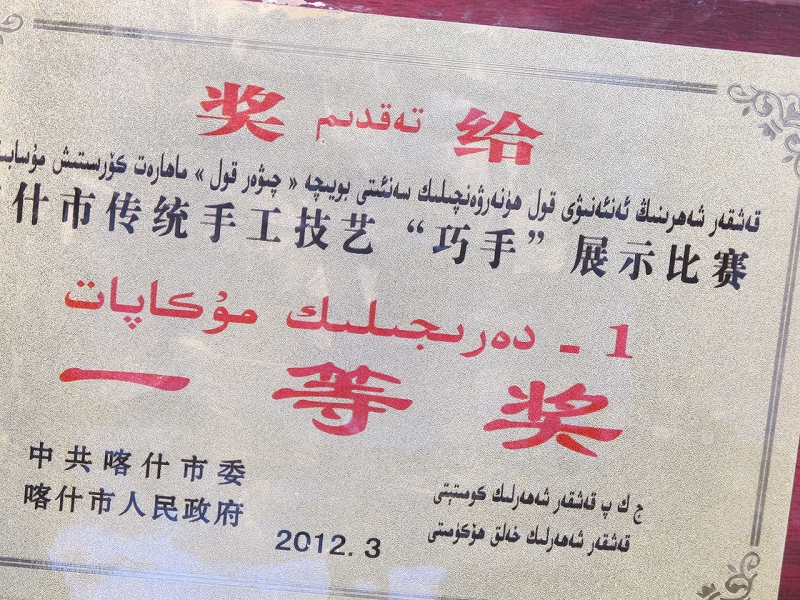 奖 تەقدىم 给
قەشقەر شەھرىنىڭ ئەنئەنىۋى قول ھۈنەرۋەنچىلىك سەنئىتى بويىچە « چىۋەر قول » ماھارەت كۆرسىتىش
什市传统手工技艺“巧手”展示比赛
1 - دەرىجىلىك مۇكاپات
一等奖
中共喀什市委
喀什市人民政府
ج ك پ قەشقەر شەھەرلىك كومىتېتى
قەشقەر شەھەرلىك خەلق ھۆكۈمىتى
2012.3